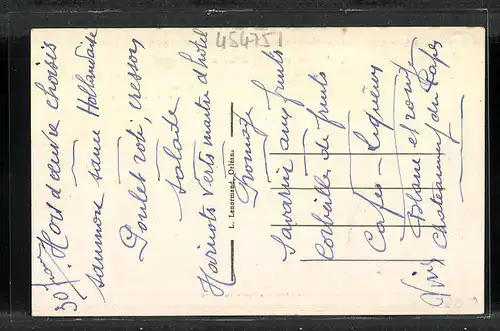 454751
30 frs Hors d'oeuvre choisis
saumon sauce Hollandaise
Poulet roti, cresson
salade
Haricots verts maitre d'hotel
L. Lenormand, Orléans
Fromage
Savarin aux fruits
Corbeille de fruits
Cafés - Liqueurs
Vins Blanc et rouge
Chateauneuf du Pape